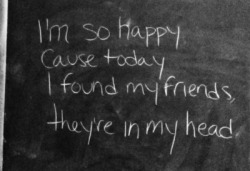 I'm so happy.
Cause today
I found my friends,
they're in my head